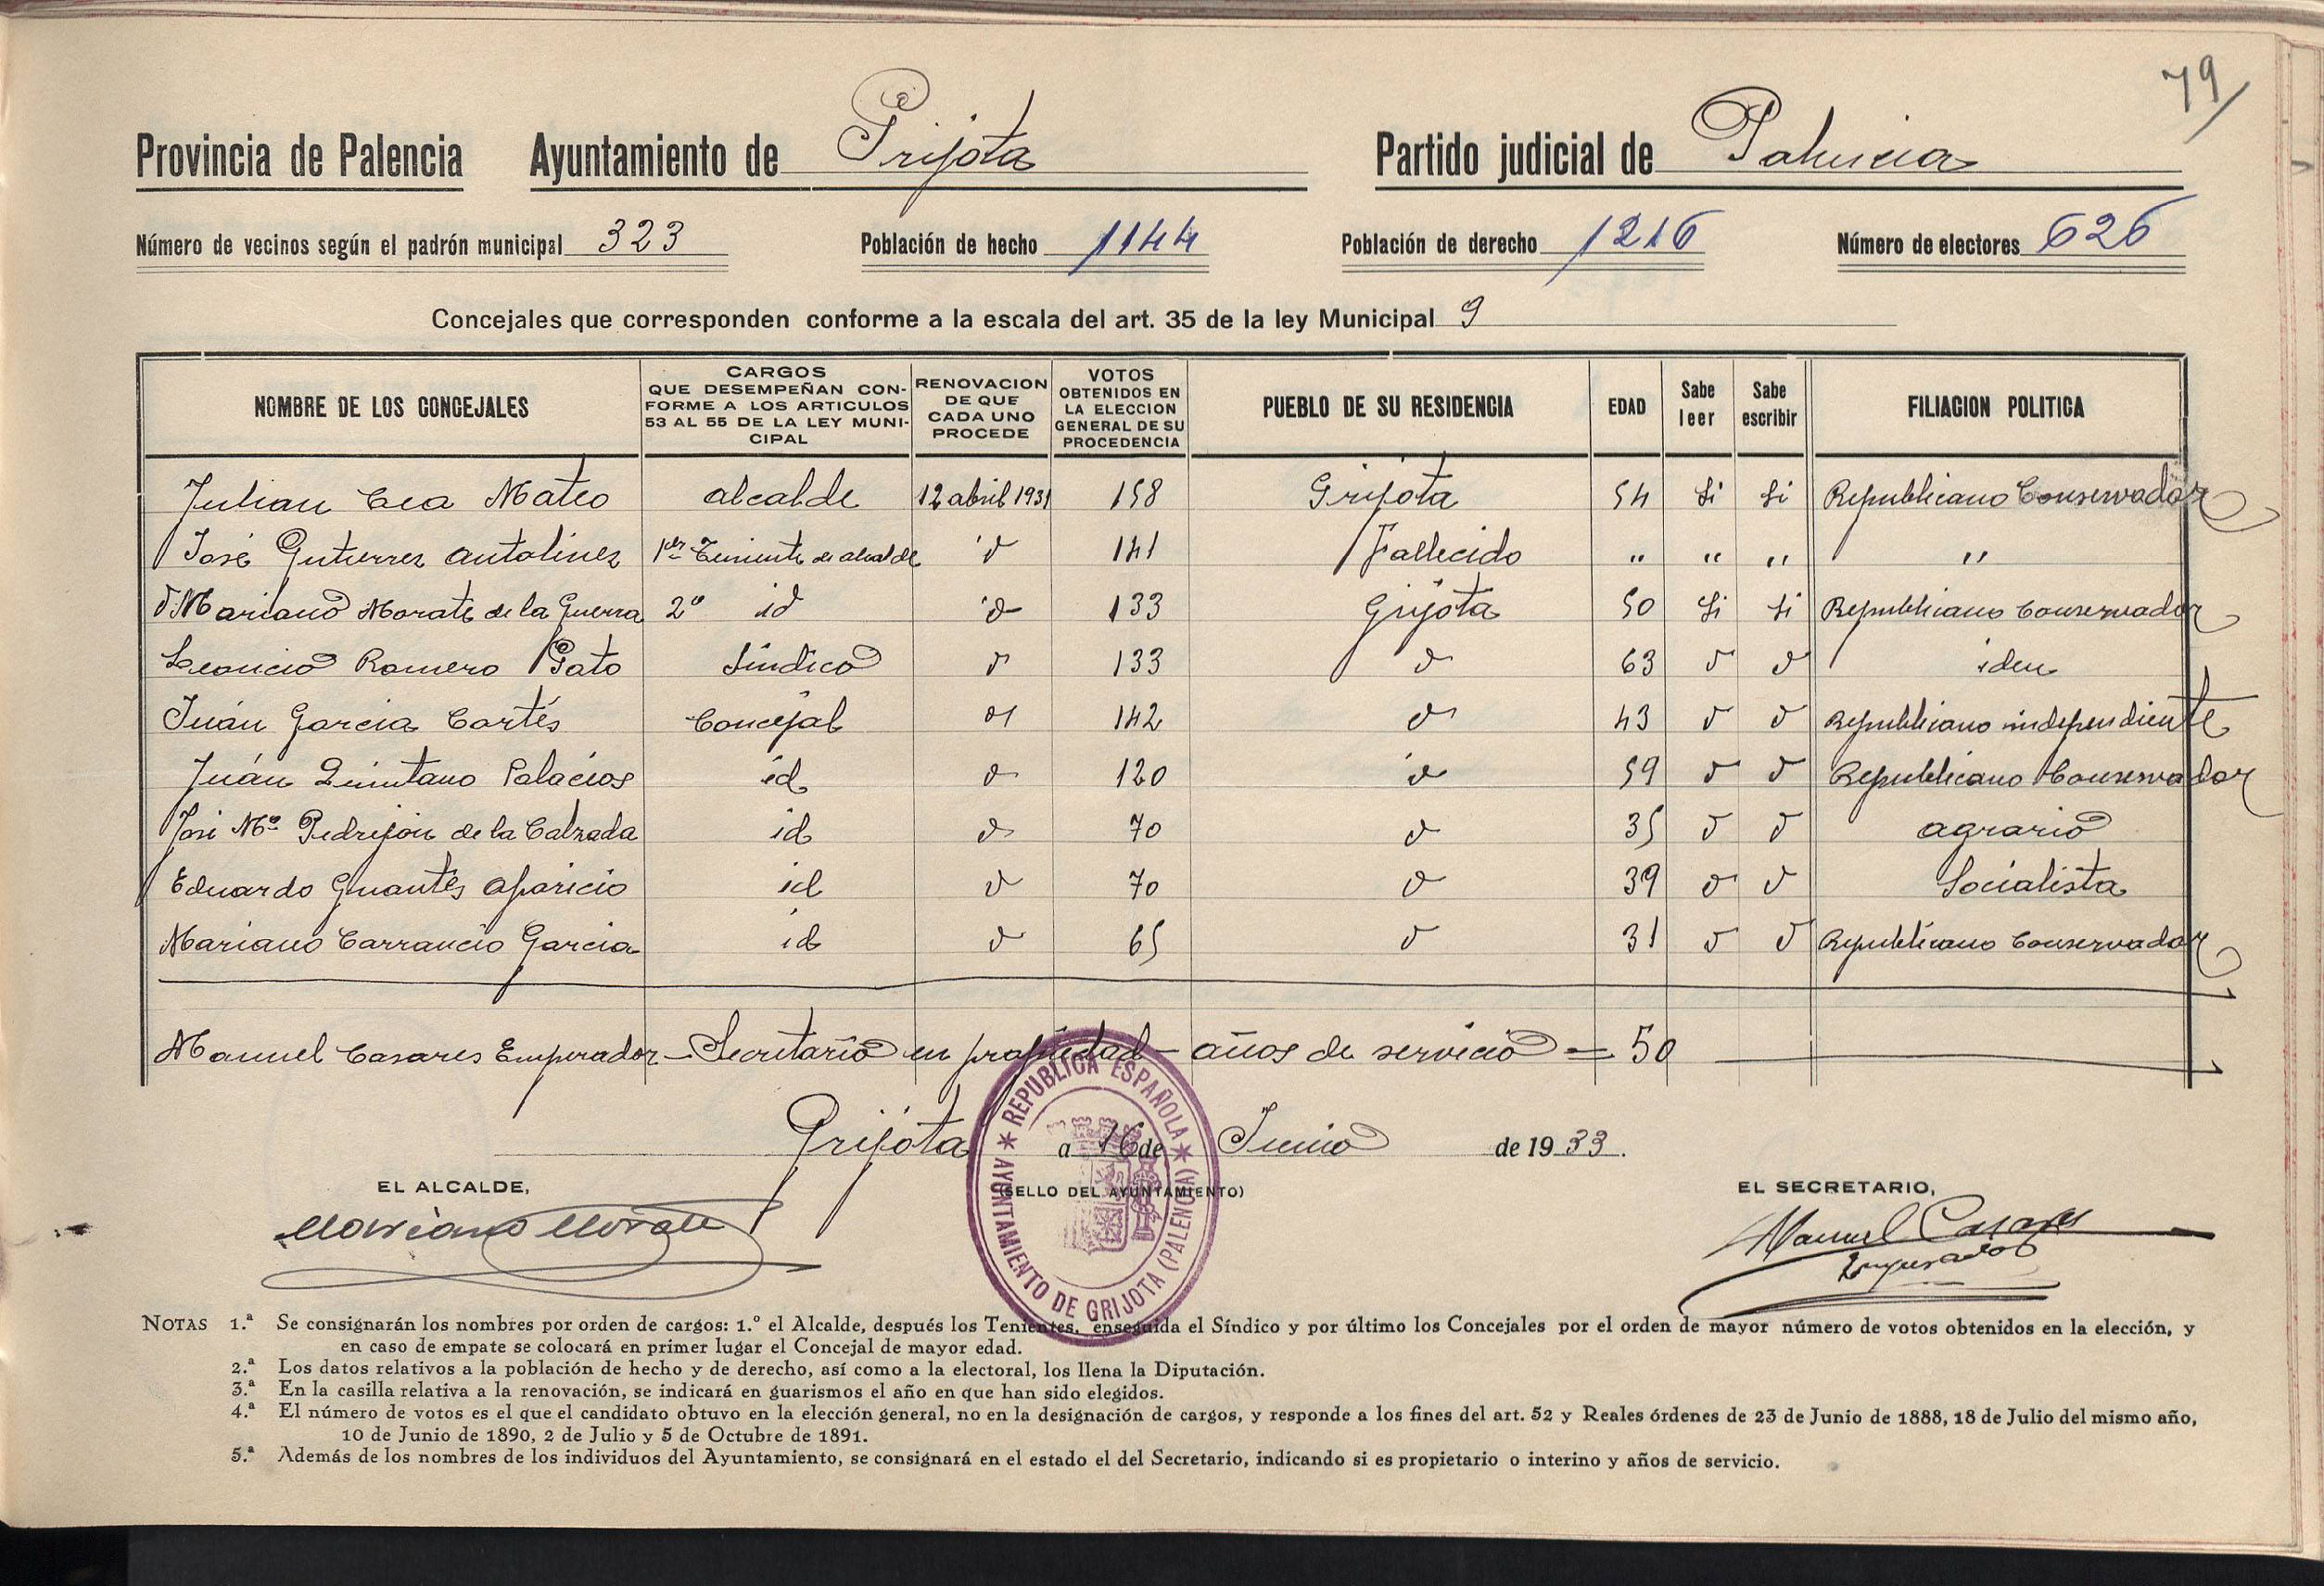 79
Provincia de Palencia Ayuntamiento de Grijota Partido judicial de Palencia
Número de vecinos según el padrón municipal 323 Población de hecho 1144 Población de derecho 1216 Número de electores 626
Concejales que corresponden conforme a la escala del art. 35 de la ley Municipal 9
NOMBRE DE LOS CONCEJALES CARGOS QUE DESEMPEÑAN CONFORME A LOS ARTICULOS 53 AL 55 DE LA LEY MUNICIPAL RENOVACION DE QUE CADA UNO PROCEDE VOTOS OBTENIDOS EN LA ELECCION GENERAL DE SU PROCEDENCIA PUEBLO DE SU RESIDENCIA EDAD Sabe leer Sabe escribir FILIACION POLITICA
Julian Cea Mateo alcalde 12 abril 1931 158 Grijota 54 Si Si Republicano Conservador
José Gutierrez Antolinez 1er Teniente de alcalde id 141 Fallecido " " " "
Mariano Morate de la Guerra 2º id id 133 Grijota 50 Si Si Republicano Conservador
Leoncio Romero Gato Sindico id 133 id 63 id id iden
Juán Garcia Cortés Concejal id 142 id 43 id id Republicano independiente
Juán Quintano Palacios id id 120 id 59 id id Republicano Conservador
José Mª Pedrejón de la Calzada id id 70 id 35 id id agrario
Eduardo Guantes Aparicio id id 70 id 39 id id Socialista
Mariano Carrancio Garcia id id 65 id 31 id id Republicano Conservador
Manuel Casares Emperador - Secretario en propiedad - años de servicio = 50
Grijota a 16 de Junio de 1933.
EL ALCALDE, (SELLO DEL AYUNTAMIENTO) EL SECRETARIO,
Mariano Morate Manuel Casares
Emperador
* REPUBLICA ESPAÑOLA * AYUNTAMIENTO DE GRIJOTA (PALENCIA)
NOTAS 1.ª Se consignarán los nombres por orden de cargos: 1.º el Alcalde, después los Tenientes, enseguida el Síndico y por último los Concejales por el orden de mayor número de votos obtenidos en la elección, y
en caso de empate se colocará en primer lugar el Concejal de mayor edad.
2.ª Los datos relativos a la población de hecho y de derecho, así como a la electoral, los llena la Diputación.
3.ª En la casilla relativa a la renovación, se indicará en guarismos el año en que han sido elegidos.
4.ª El número de votos es el que el candidato obtuvo en la elección general, no en la designación de cargos, y responde a los fines del art. 52 y Reales órdenes de 23 de Junio de 1888, 18 de Julio del mismo año,
10 de Junio de 1890, 2 de Julio y 5 de Octubre de 1891.
5.ª Además de los nombres de los individuos del Ayuntamiento, se consignará en el estado el del Secretario, indicando si es propietario o interino y años de servicio.